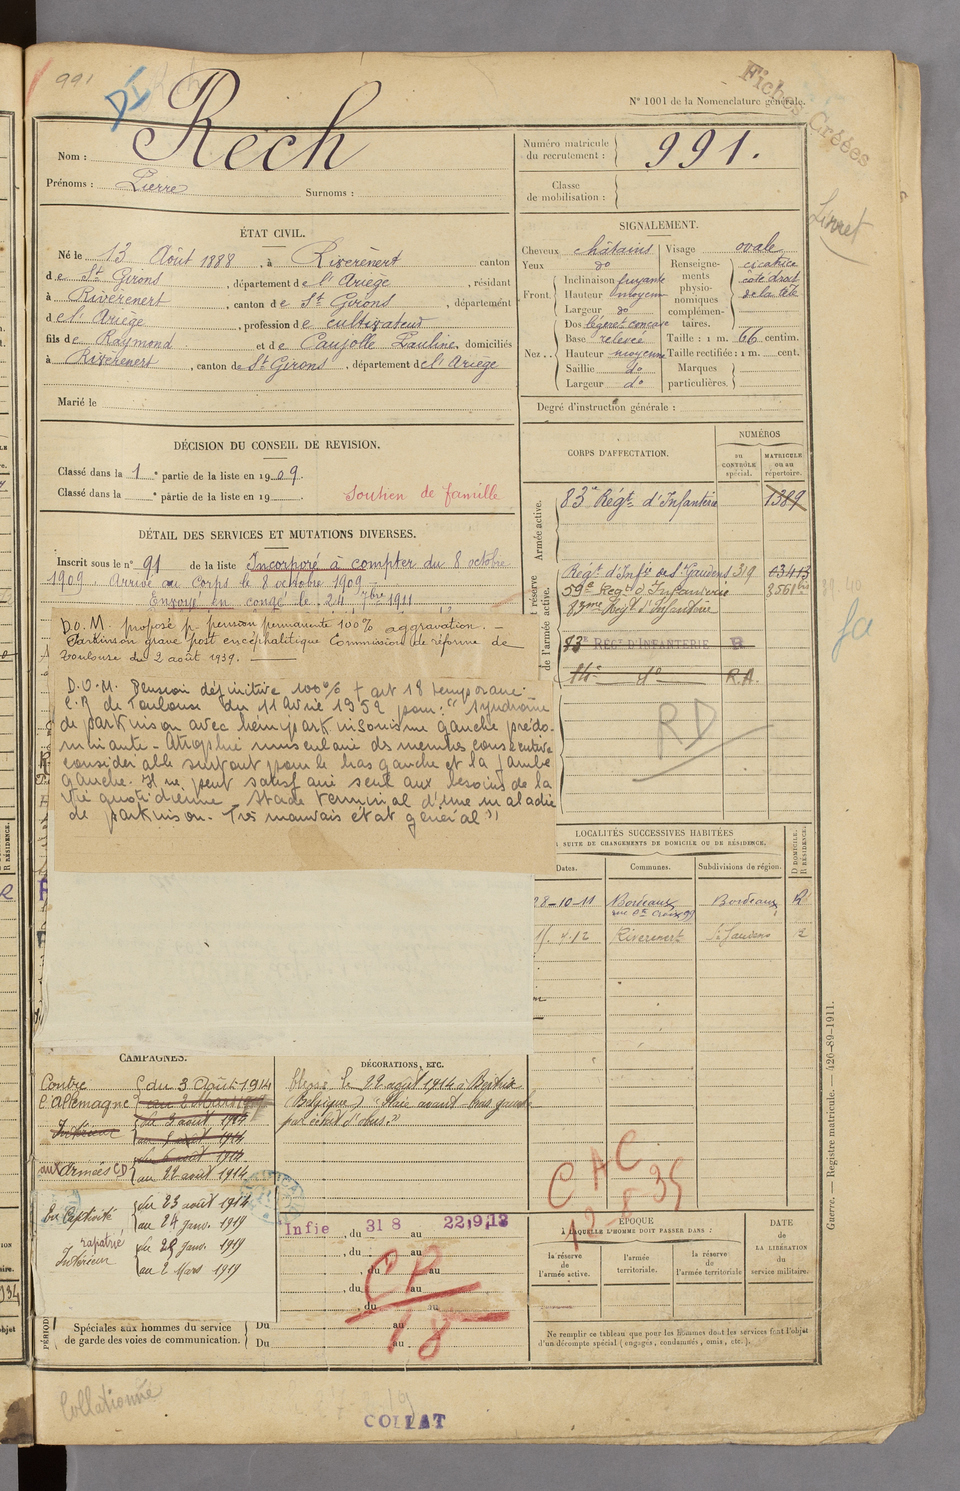 991
Fiches Créées
N° 1001 de la Nomenclature générale.
Nom : Rech
Prénoms : Pierre Surnoms :
Numéro matricule du recrutement : 991.
Classe de mobilisation :
ÉTAT CIVIL.
Né le 13 Août 1888, à Riverenert canton
de St Girons, département de l'Ariège, résidant
à Riverenert, canton de St Girons, département
de l'Ariège, profession de cultivateur
fils de Raymond et de Caujolle Pauline, domiciliés
à Riverenert, canton de St Girons, département de l'Ariège
Marié le
SIGNALEMENT.
Cheveux châtains
Yeux do
Front Inclinaison fuyante
Hauteur moyenne
Largeur do
Nez Dos légèrt concave
Base relevée
Hauteur moyenne
Saillie do
Largeur do
Visage ovale
Renseignements physionomiques complémentaires. cicatrice
côté droit
de la tête
Taille : 1 m. 66 centim.
Taille rectifiée : 1 m. cent.
Marques particulières.
Degré d'instruction générale :
DÉCISION DU CONSEIL DE REVISION.
Classé dans la 1e partie de la liste en 1909.
Classé dans la e partie de la liste en 19
Soutien de famille
DÉTAIL DES SERVICES ET MUTATIONS DIVERSES.
Inscrit sous le n° 91 de la liste Incorporé à compter du 8 octobre
1909. Arrivé au corps le 8 octobre 1909
Envoyé en congé le 24 7bre 1911
D.O.M. proposé p. pension permanente 100% aggravation. —
Parkinson grave post encéphalitique Commission de réforme de
Toulouse du 2 août 1939. —
D.O.M. Pension définitive 100% + art 18 temporaire.
C.R de Toulouse du 11 Avril 1952 pour : "Syndrome
de parkinson avec hémiparkinsonisme gauche prédo-
minante - Atrophie musculaire des membres consécutive
considérable surtout pour le bras gauche et la jambe
gauche. Il ne peut satisfaire seul aux besoins de la
vie quotidienne - Stade terminal d'une maladie
de parkinson. Très mauvais état général"
CORPS D'AFFECTATION.
NUMÉROS
au CONTRÔLE spécial.
MATRICULE ou au répertoire.
Armée active.
83e Régt d'Infanterie 1389
Régt d'Infie de St Gaudens 319 03413
59e Régt d'Infanterie 3561bis
83eme Rég't d'Infanterie
83e RÉGT D'INFANTERIE B
R.A.
RD
LOCALITÉS SUCCESSIVES HABITÉES
PAR SUITE DE CHANGEMENTS DE DOMICILE OU DE RÉSIDENCE.
Dates. Communes. Subdivisions de région. D DOMICILE. R RÉSIDENCE.
28-10-11 Bordeaux Bordeaux R
4.12 Riverenert St Gaudens
CAMPAGNES.
Contre l'Allemagne du 3 Août 1914
au 2 Mars 1919
Intérieur du 3 août 1914
aux Armées CD
au 22 août 1914
En Captivité du 23 août 1914
au 24 janv. 1919
rapatrié
Intérieur du 25 janv. 1919
au 2 Mars 1919
DÉCORATIONS, ETC.
blessé le 22 août 1914 à Bertrix
(Belgique) "Plaie avant bras gauche
par éclat d'obus."
Infie, du 31 8 au 22.9.13
, du au
, du au
, du au
, du au
CP
18
PÉRIODES
Spéciales aux hommes du service
de garde des voies de communication.
Du au
Du au
CAC
12-8-35
ÉPOQUE
À LAQUELLE L'HOMME DOIT PASSER DANS :
la réserve de l'armée active.
l'armée territoriale.
la réserve de l'armée territoriale
DATE DE LA LIBÉRATION du service militaire.
Ne remplir ce tableau que pour les hommes dont les services font l'objet
d'un décompte spécial (engagés, condamnés, omis, etc.).
Guerre. — Registre matricule. — 426-89-1911.
Collationné
COLLAT